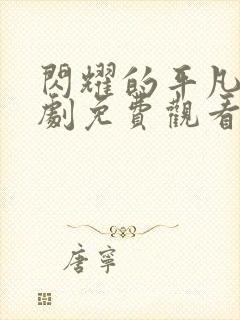 閃耀的平凡
劇免費觀看
唐寧